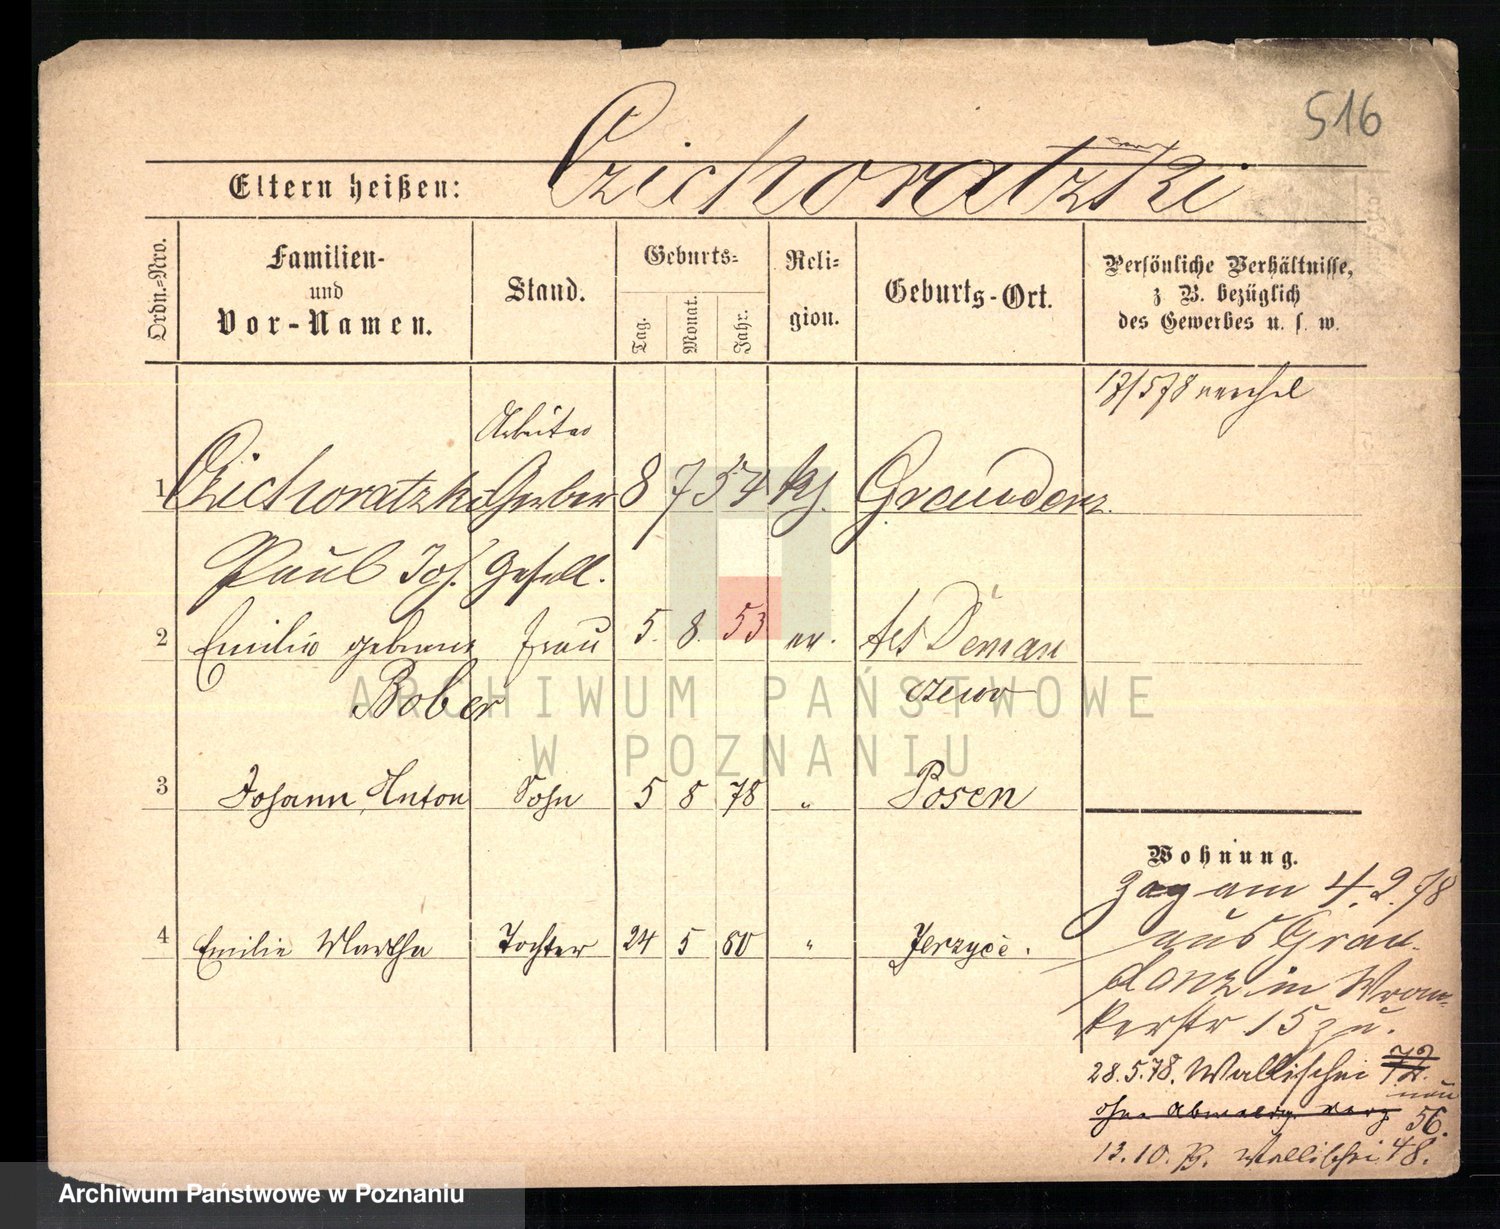 516
Eltern heißen: Czichoratzki
Ordn.-Nro.
Familien-
und
Vor-Namen.
Stand.
Geburts-
Tag.
Monat.
Jahr.
Reli-
gion.
Geburts-Ort.
Persönliche Verhältnisse,
z. B. bezüglich
des Gewerbes u. s. w.
17/5 78
Arbeiter
1 Czichoratzki Gerber 8 7 54 Graudenz
Paul Joh. Gesell.
2 Emilie geborene Frau 5. 8. 53 ev.
Bober
3 Johann Anton Sohn 5 8 78 " Posen
4 Emilie Martha Tochter 24 5 80 " Jerzyce.
Wohnung.
Zog am 4.2.78
aus Grau-
denz in Wron-
kerstr 15 zu.
28.5.78. Wallischei 72.
56.
13.10. Wallischei 48.
ARCHIWUM PAŃSTWOWE
W POZNANIU
Archiwum Państwowe w Poznaniu